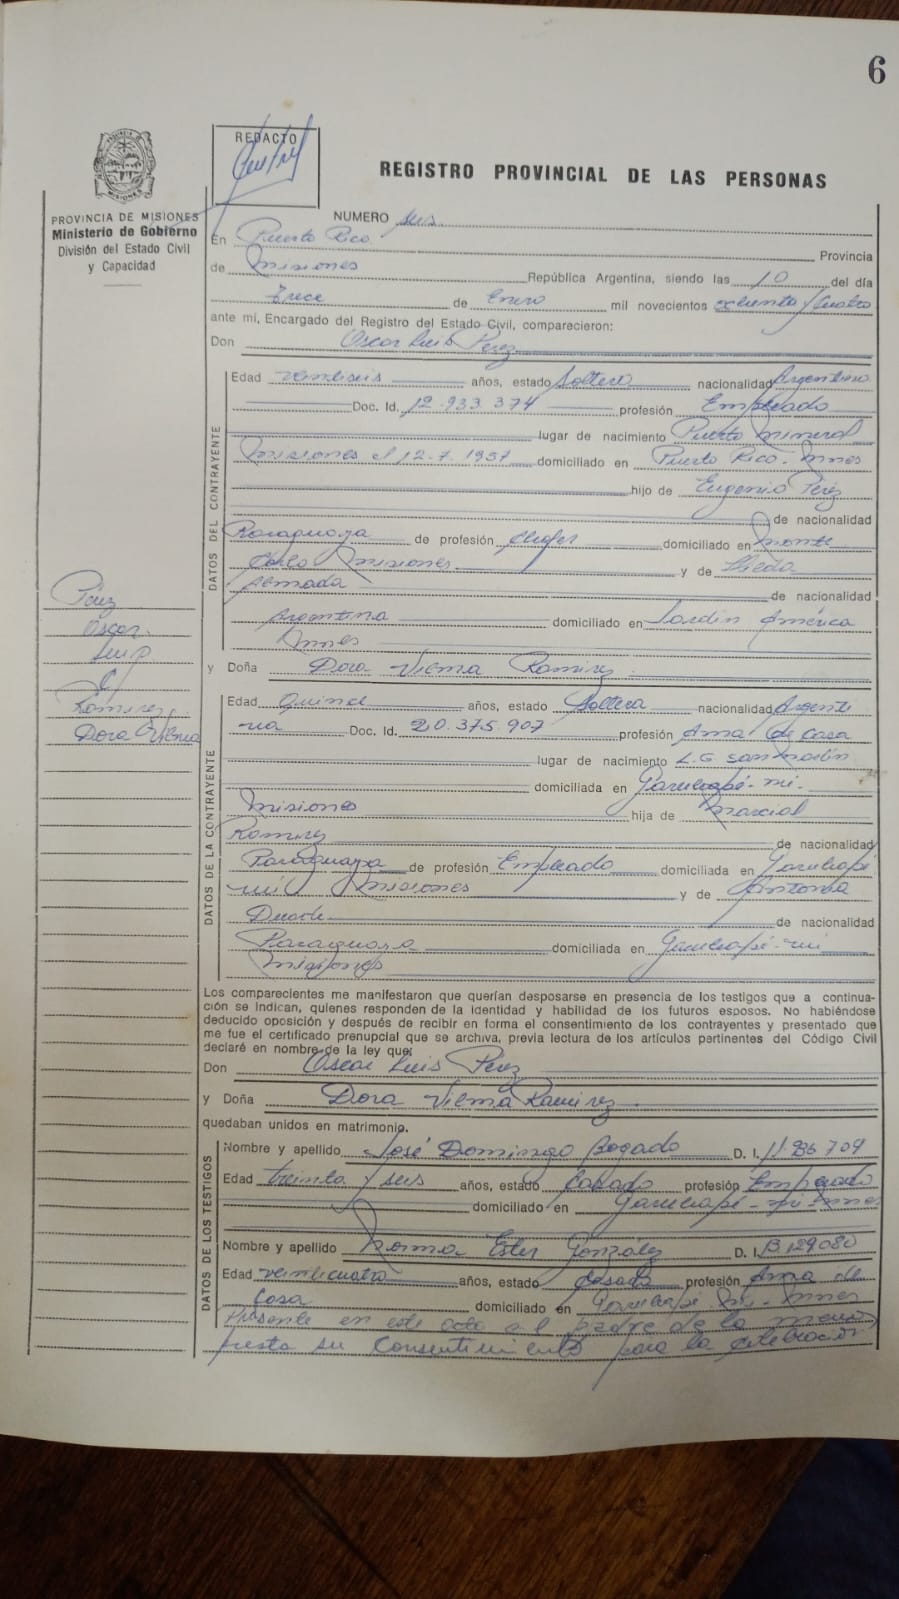 6
REDACTO
REGISTRO PROVINCIAL DE LAS PERSONAS
PROVINCIA DE MISIONES
Ministerio de Gobierno
División del Estado Civil
y Capacidad
NUMERO seis
En Puerto Rico Provincia
de Misiones República Argentina, siendo las 10 del día
Trece de Enero mil novecientos ochenta y cuatro
ante mí, Encargado del Registro del Estado Civil, comparecieron:
Don Oscar Luis Perez
DATOS DEL CONTRAYENTE
Edad veintiseis años, estado Soltero nacionalidad Argentino
Doc. Id. 12.933.374 profesión Empleado
lugar de nacimiento Puerto Mineral
Misiones el 12.7.1957 domiciliado en Puerto Rico - Mnes
hijo de Eugenio Pérez
de nacionalidad
Paraguaya de profesión Chofer domiciliado en Monte
Carlo Misiones y de
de nacionalidad
Argentina domiciliado en Jardin América
Mnes
y Doña Dora Vilma Ramirez
Perez
Oscar
Luis
c/
Ramirez
Dora Vilma
DATOS DE LA CONTRAYENTE
Edad Quince años, estado Soltera nacionalidad Argenti
na Doc. Id. 20.375.907 profesión Ama de Casa
lugar de nacimiento L.G. San Martín
domiciliada en Garuhapé-mi.
Misiones hija de Marcial
Ramirez de nacionalidad
Paraguaya de profesión Empleado domiciliada en Garuhapé
mi Misiones y de Antonia
Duarte de nacionalidad
Paraguaya domiciliada en Garuhapé-mi
Misiones
Los comparecientes me manifestaron que querían desposarse en presencia de los testigos que a continua-
ción se indican, quienes responden de la identidad y habilidad de los futuros esposos. No habiéndose
deducido oposición y después de recibir en forma el consentimiento de los contrayentes y presentado que
me fue el certificado prenupcial que se archiva, previa lectura de los artículos pertinentes del Código Civil
declaré en nombre de la ley que:
Don Oscar Luis Perez
y Doña Dora Vilma Ramirez.
quedaban unidos en matrimonio.
DATOS DE LOS TESTIGOS
Nombre y apellido José Domingo Bogado D. I.
Edad treinta y seis años, estado Casado profesión Empleado
domiciliado en Garuhapé-mi-Mnes
Nombre y apellido Norma Ester González D. I.
Edad veinticuatro años, estado Casada profesión Ama de
Casa domiciliado en Garuhapé-Mi-Mnes
Presente en este acto el padre de la menor
presta su Consentimiento para la celebración